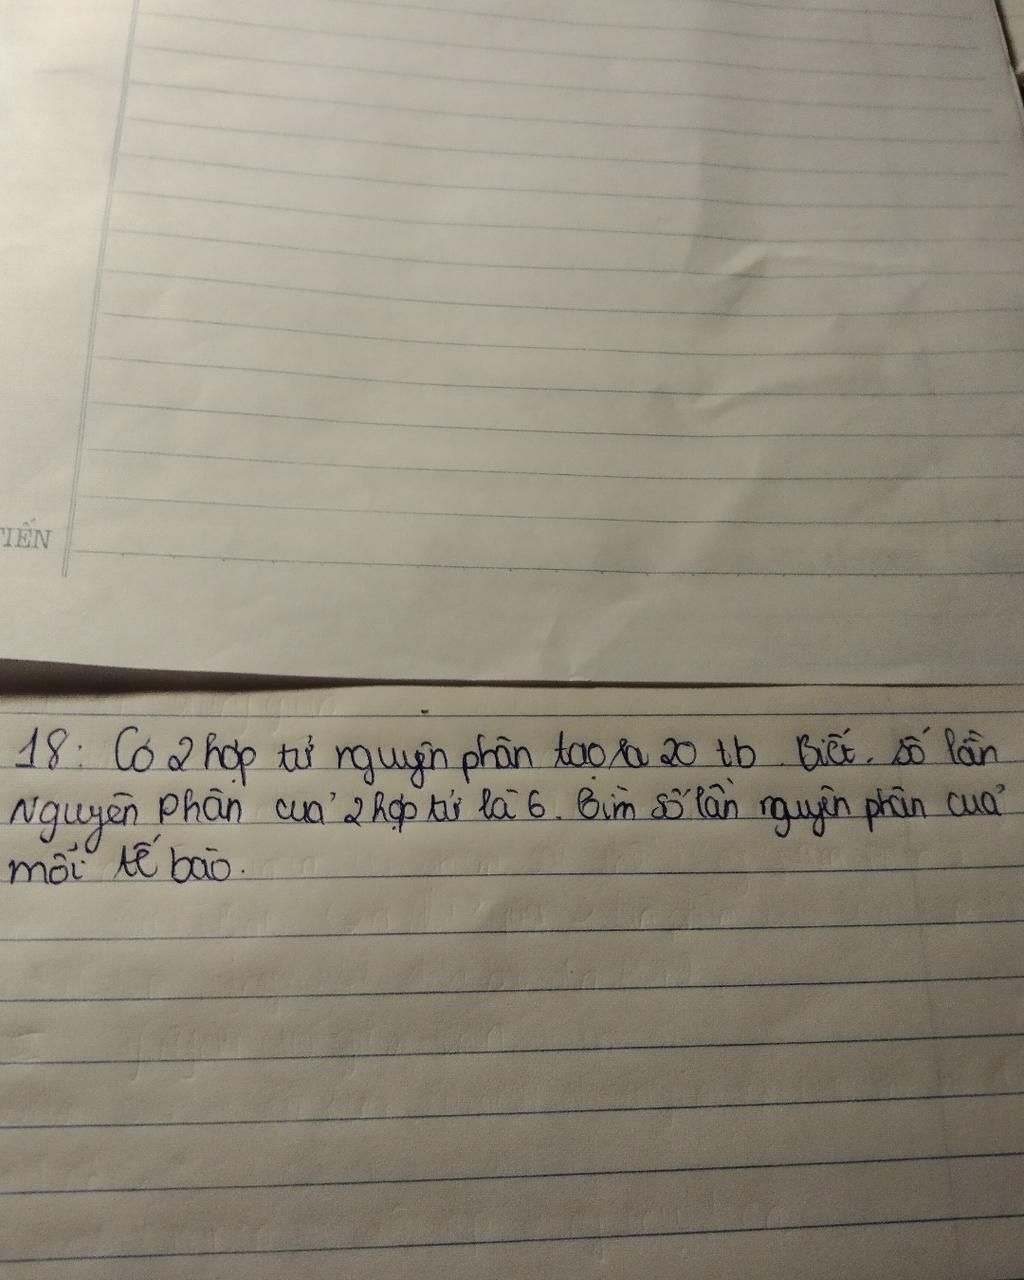 TIẾN
18: Có 2 hợp tử nguyên phân tạo ra 20 tb. Biết. số lần
Nguyên phân của 2 hợp tử là 6. Tìm số lần nguyên phân của
mỗi tế bào.